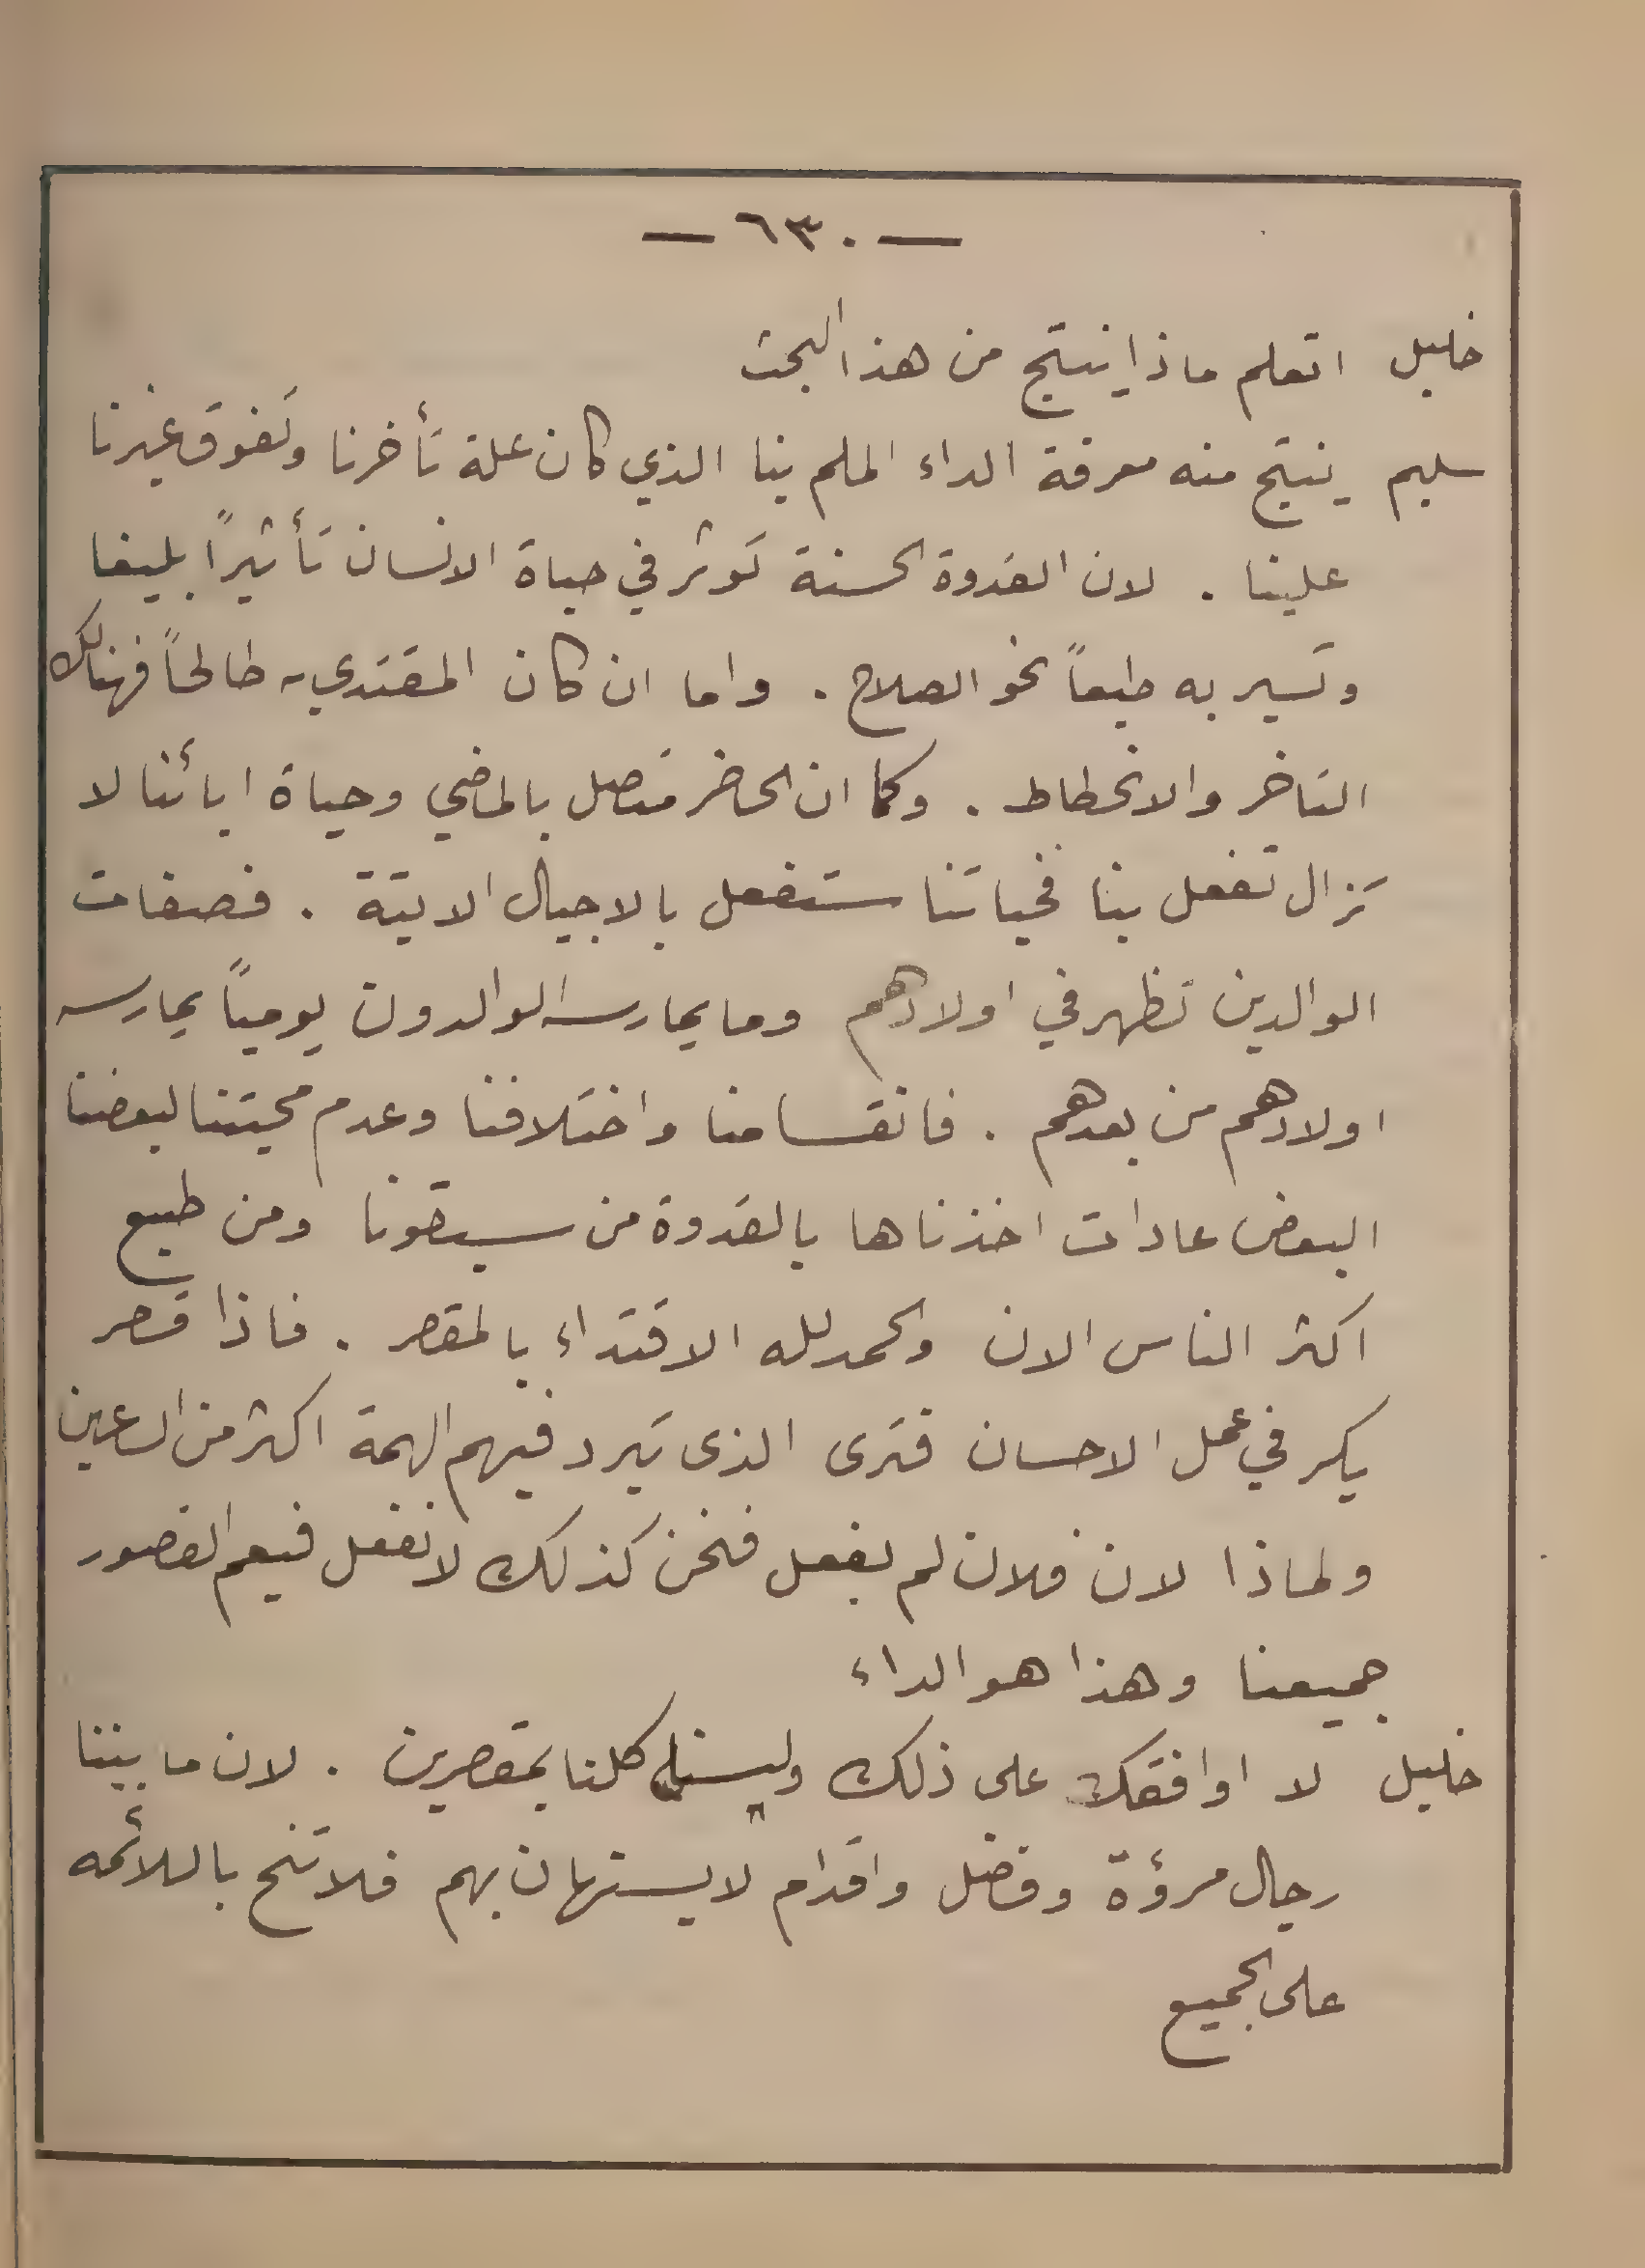 — ٦٣٠ —
خليل اتعلم ماذا ينتج من هذا البحث
سليم ينتج منه معرفة الداء الملم بنا الذي كان علة تأخرنا وتفوق غيرنا
علينا . لان القدوة الحسنة توثر في حياة الانسان تأثيراً بليغا
وتسير به طبعاً نحو الصلاح . واما ان كان المقتدي به طالحاً فهنالك
التاخر والانحطاط . وكما ان الحاضر متصل بالماضي وحياة ابائنا لا
تزال تفعل بنا فحياتنا ستفعل بالاجيال الاتية . فصفات
الوالدين تظهر في اولادهم وما يمارسه الوالدون يومياً يمارسه
اولادهم من بعدهم . فانقسامنا واختلافنا وعدم محبتنا لبعضنا
البعض عادات اخذناها بالقدوة من سبقونا ومن طبيع
اكثر الناس الان والحمد لله الاقتداء بالمقصر . فاذا قصر
بكر في عمل الاحسان فترى الذى تبرد فيهم الهمة اكثر من الساعين
ولماذا لان فلان لم يفعل فنحن كذلك لا نفعل فيعم القصور
جميعنا وهذا هو الداء
خليل لا اوافقك على ذلك وليسنا كلنا بمقصرين . لان ما بيننا
رجال مرؤة وفضل واقدام لا يستهان بهم فلا تنح باللائمه
على الجميع